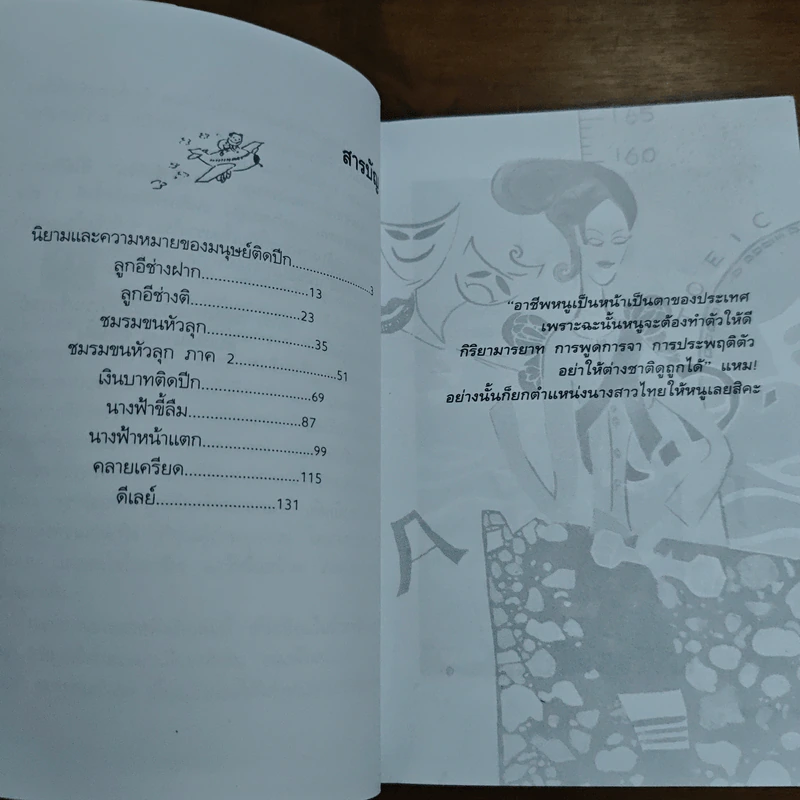 สารบัญ
นิยามและความหมายของมนุษย์ติดปีก....................3
ลูกอีช่างฝาก....................13
ลูกอีช่างติ....................23
ชมรมขนหัวลุก....................35
ชมรมขนหัวลุก ภาค 2....................51
เงินบาทติดปีก....................69
นางฟ้าขี้ลืม....................87
นางฟ้าหน้าแตก....................99
คลายเครียด....................115
ดีเลย์....................131
165
160
OEIC
"อาชีพหนูเป็นหน้าเป็นตาของประเทศ
เพราะฉะนั้นหนูจะต้องทำตัวให้ดี
กิริยามารยาท การพูดการจา การประพฤติตัว
อย่าให้ต่างชาติดูถูกได้" แหม!
อย่างนั้นก็ยกตำแหน่งนางสาวไทยให้หนูเลยสิคะ
A